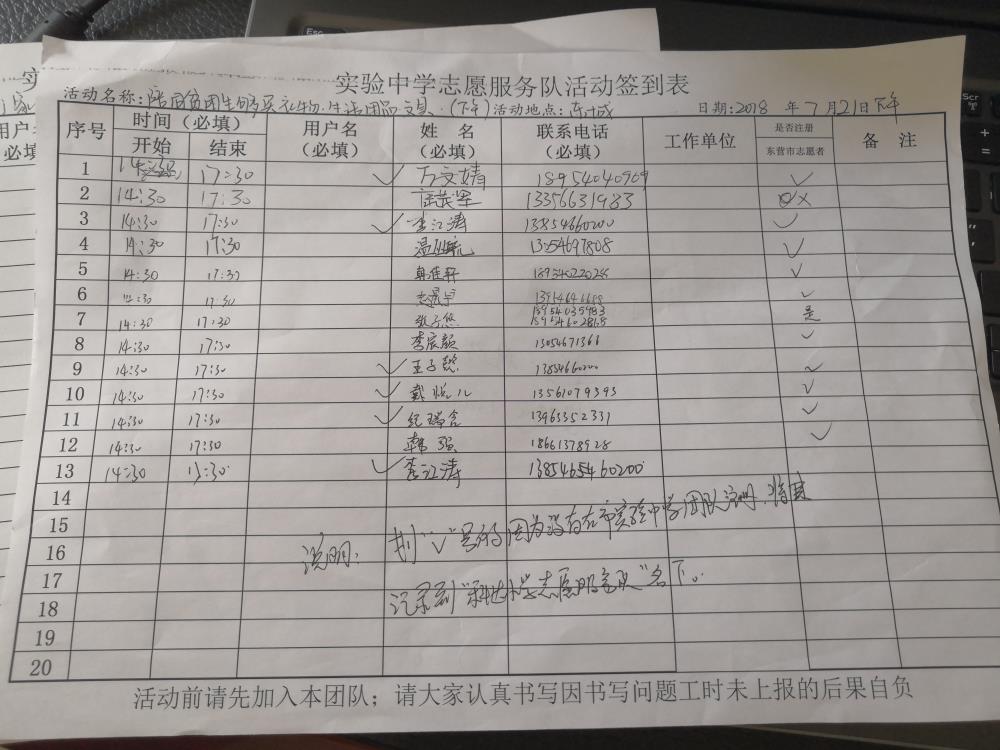 实验中学志愿服务队活动签到表
活动名称:陪同贫困生购买衣物、生活用品文具.(下午)活动地点:东城 日期:2018 年7月21日下午
序号 时间(必填) 用户名(必填) 姓名(必填) 联系电话(必填) 工作单位 是否注册东营市志愿者 备注
开始 结束
1 14:30 17:30 ✓ 万文婧 18954040969 ✓
2 14:30 17:30 13356631983 ×
3 14:30 17:30 ✓ 李江涛 13854660200 ✓
4 14:30 17:30 13054697808 ✓
5 14:30 17:30 18954022028 ✓
6 14:30 17:30 ✓
7 14:30 17:30 张子悠 是
8 14:30 17:30 李宸颜 13054671366 ✓
9 14:30 17:30 ✓ 王子懿 13854660200 ✓
10 14:30 17:30 ✓ 戴悦儿 13561079393 ✓
11 14:30 17:30 ✓ 纪瑞含 13963352331 ✓
12 14:30 17:30 韩强 18661378928 ✓
13 14:30 13:30 ✓ 李江涛 1385465460200
14
15
说明: 划"✓"号的因为没有在市实验中学团队注册,将其
16
17
记录到"科达小学志愿服务队"名下。
18
19
20
活动前请先加入本团队;请大家认真书写因书写问题工时未上报的后果自负